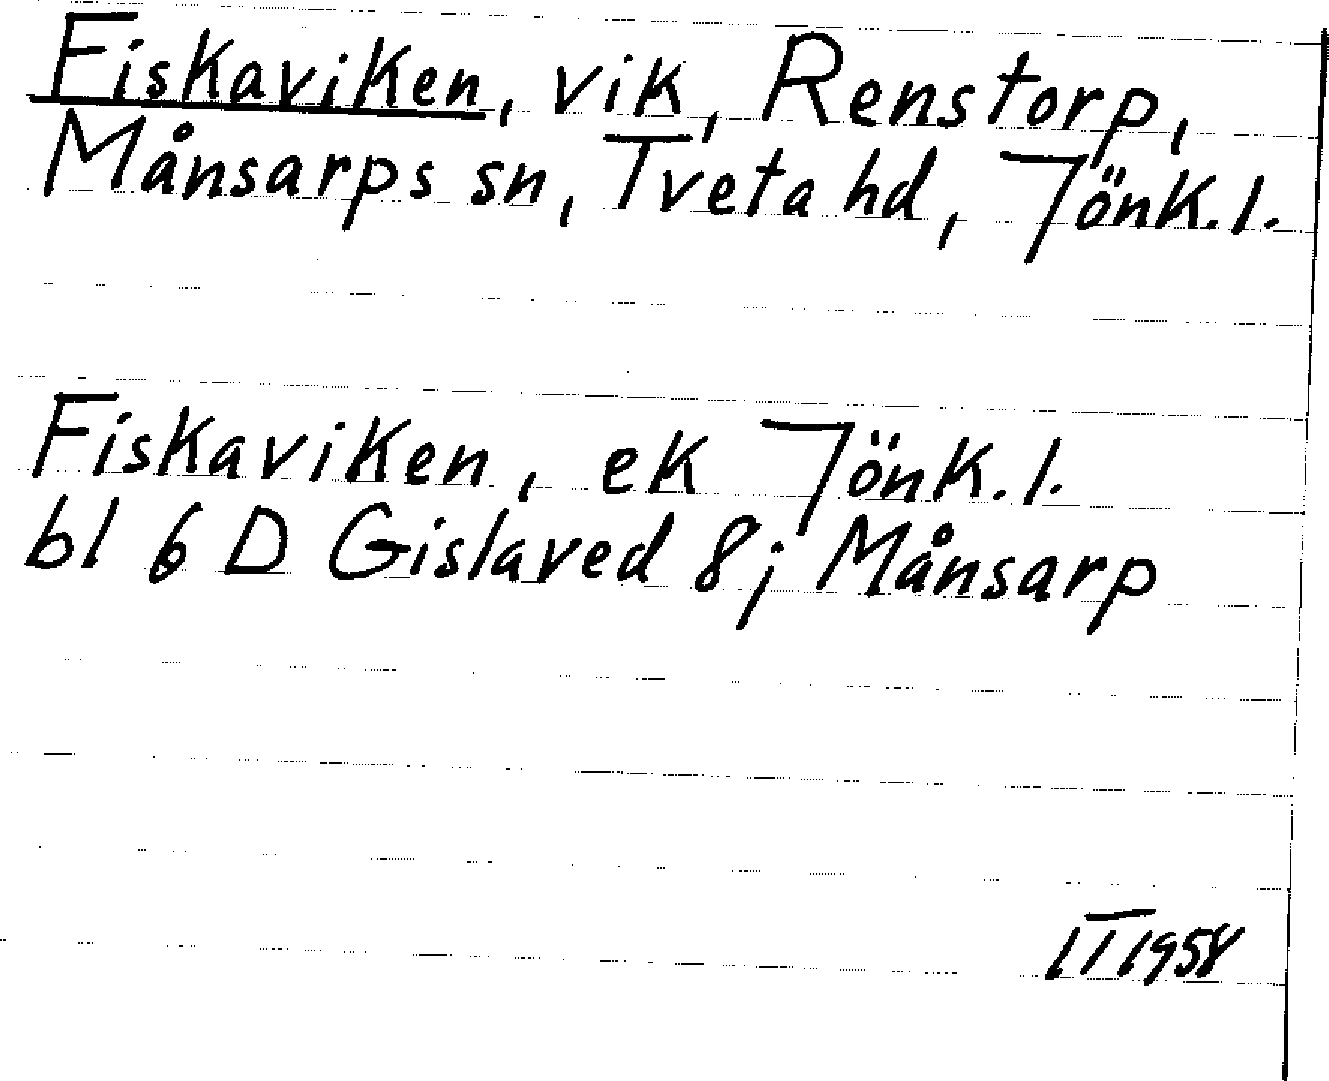 Fiskaviken, vik, Renstorp,
Månsarps sn, Tveta hd, Jönk.l.
Fiskaviken, ek Jönk.l.
bl 6 D Gislaved 8j Månsarp
IT 1958